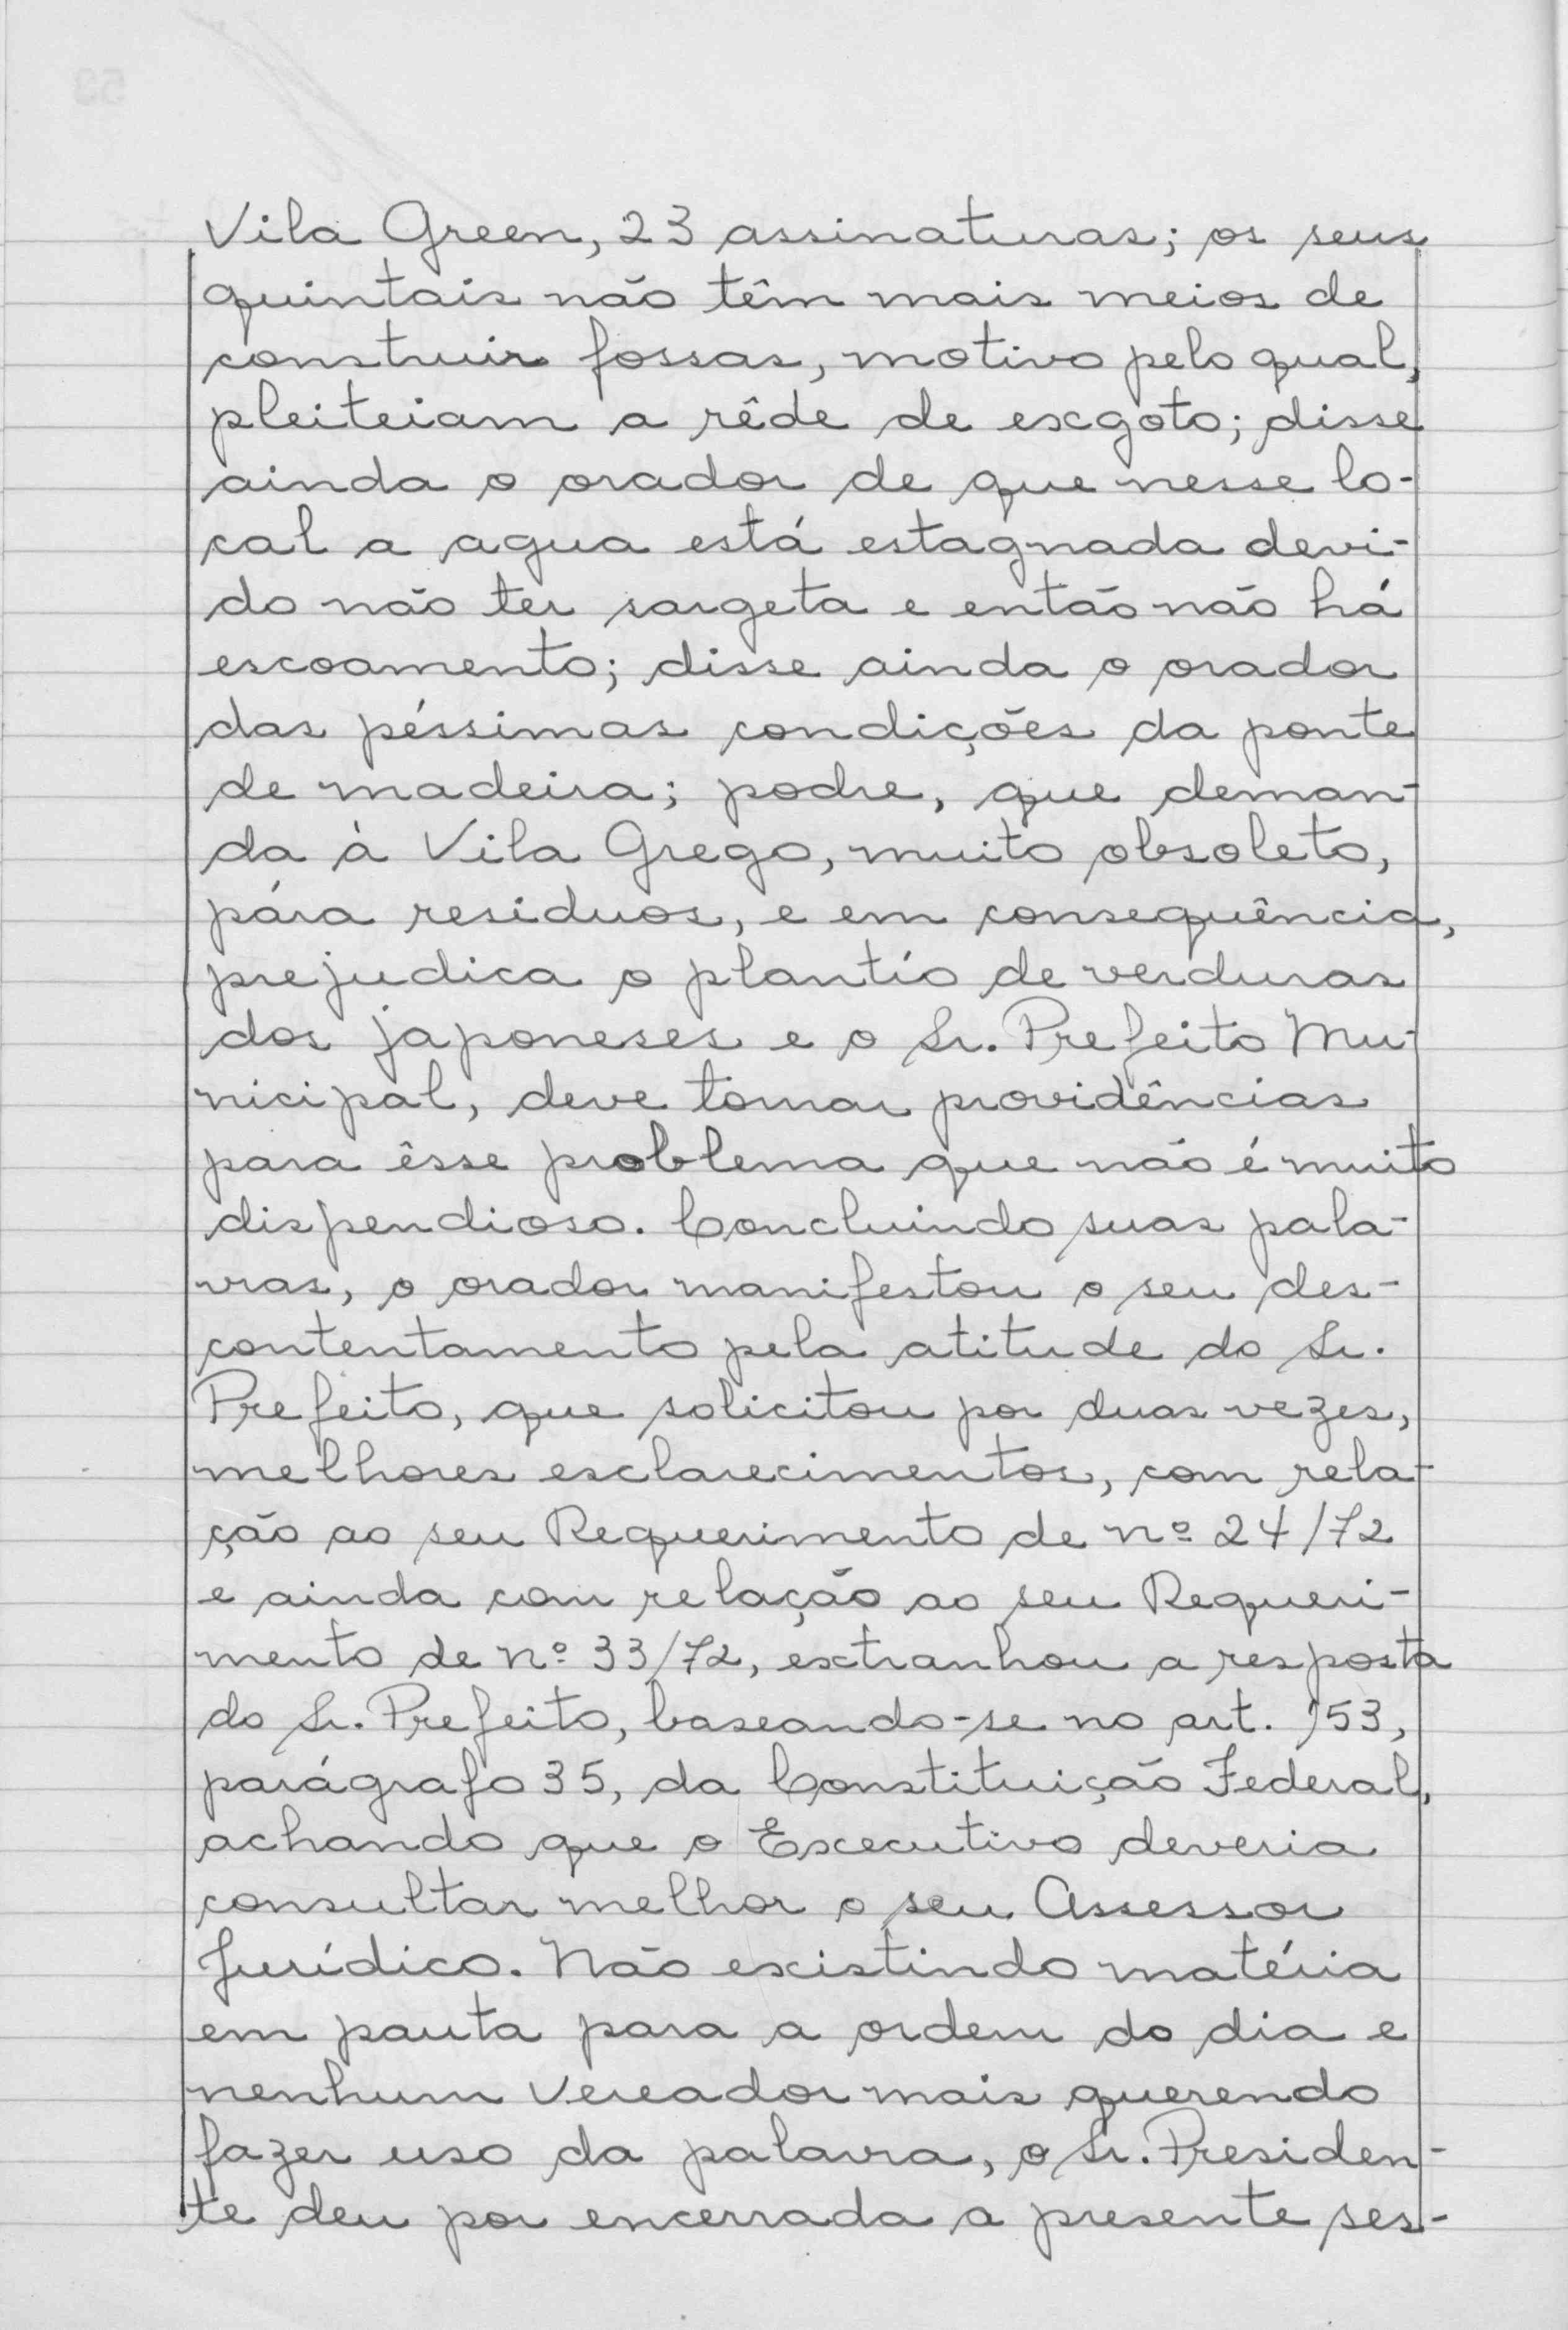 Vila Green, 23 assinaturas; os seus
quintais não têm mais meios de
construir fossas, motivo pelo qual,
pleiteiam a rêde de exgoto; disse
ainda o orador de que nesse lo-
cal a agua está estagnada devi-
do não ter sargeta e então não há
escoamento; disse ainda o orador
das péssimas condições da ponte
de madeira; podre, que deman-
da à Vila Grego, muito obsoleto,
pára residuos, e em consequência,
prejudica o plantío de verduras
dos japoneses e o Sr. Prefeito Mu-
nicipal, deve tomar providências
para êsse problema que não é muito
dispendioso. Concluindo suas pala-
vras, o orador manifestou o seu des-
contentamento pela atitude do Sr.
Prefeito, que solicitou por duas vezes,
melhores esclarecimentos, com rela-
ção ao seu Requerimento de nº 24/72
e ainda com relação ao seu Requeri-
mento de nº 33/72, extranhou a resposta
do Sr. Prefeito, baseando-se no art. 153,
parágrafo 35, da Constituição Federal,
achando que o Executivo deveria
consultar melhor o seu Assessor
Jurídico. Não existindo matéria
em pauta para a ordem do dia e
nenhum Vereador mais querendo
fazer uso da palavra, o Sr. Presiden-
te deu por encerrada a presente ses-